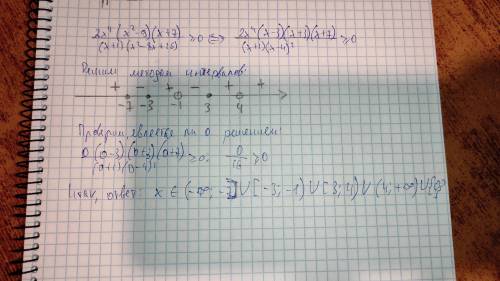 2x⁴(x²-9)(x+7)/(x+1)(x²-8x+16) ≥0 ⇔ 2x⁴(x-3)(x+3)(x+7)/(x+1)(x-4)² ≥0
Решим методом интервалов:
+ - + - + +
-7 -3 -1 3 4
Проверим, является ли 0 решением:
0(0-3)(0+3)(0+7)/(0+1)(0-4)² ≥0; 0/16 ≥0
ответ: x ∈ (-∞; -7] ∪ [-3; -1) ∪ [3; 4) ∪ (4; +∞) ∪ {0}